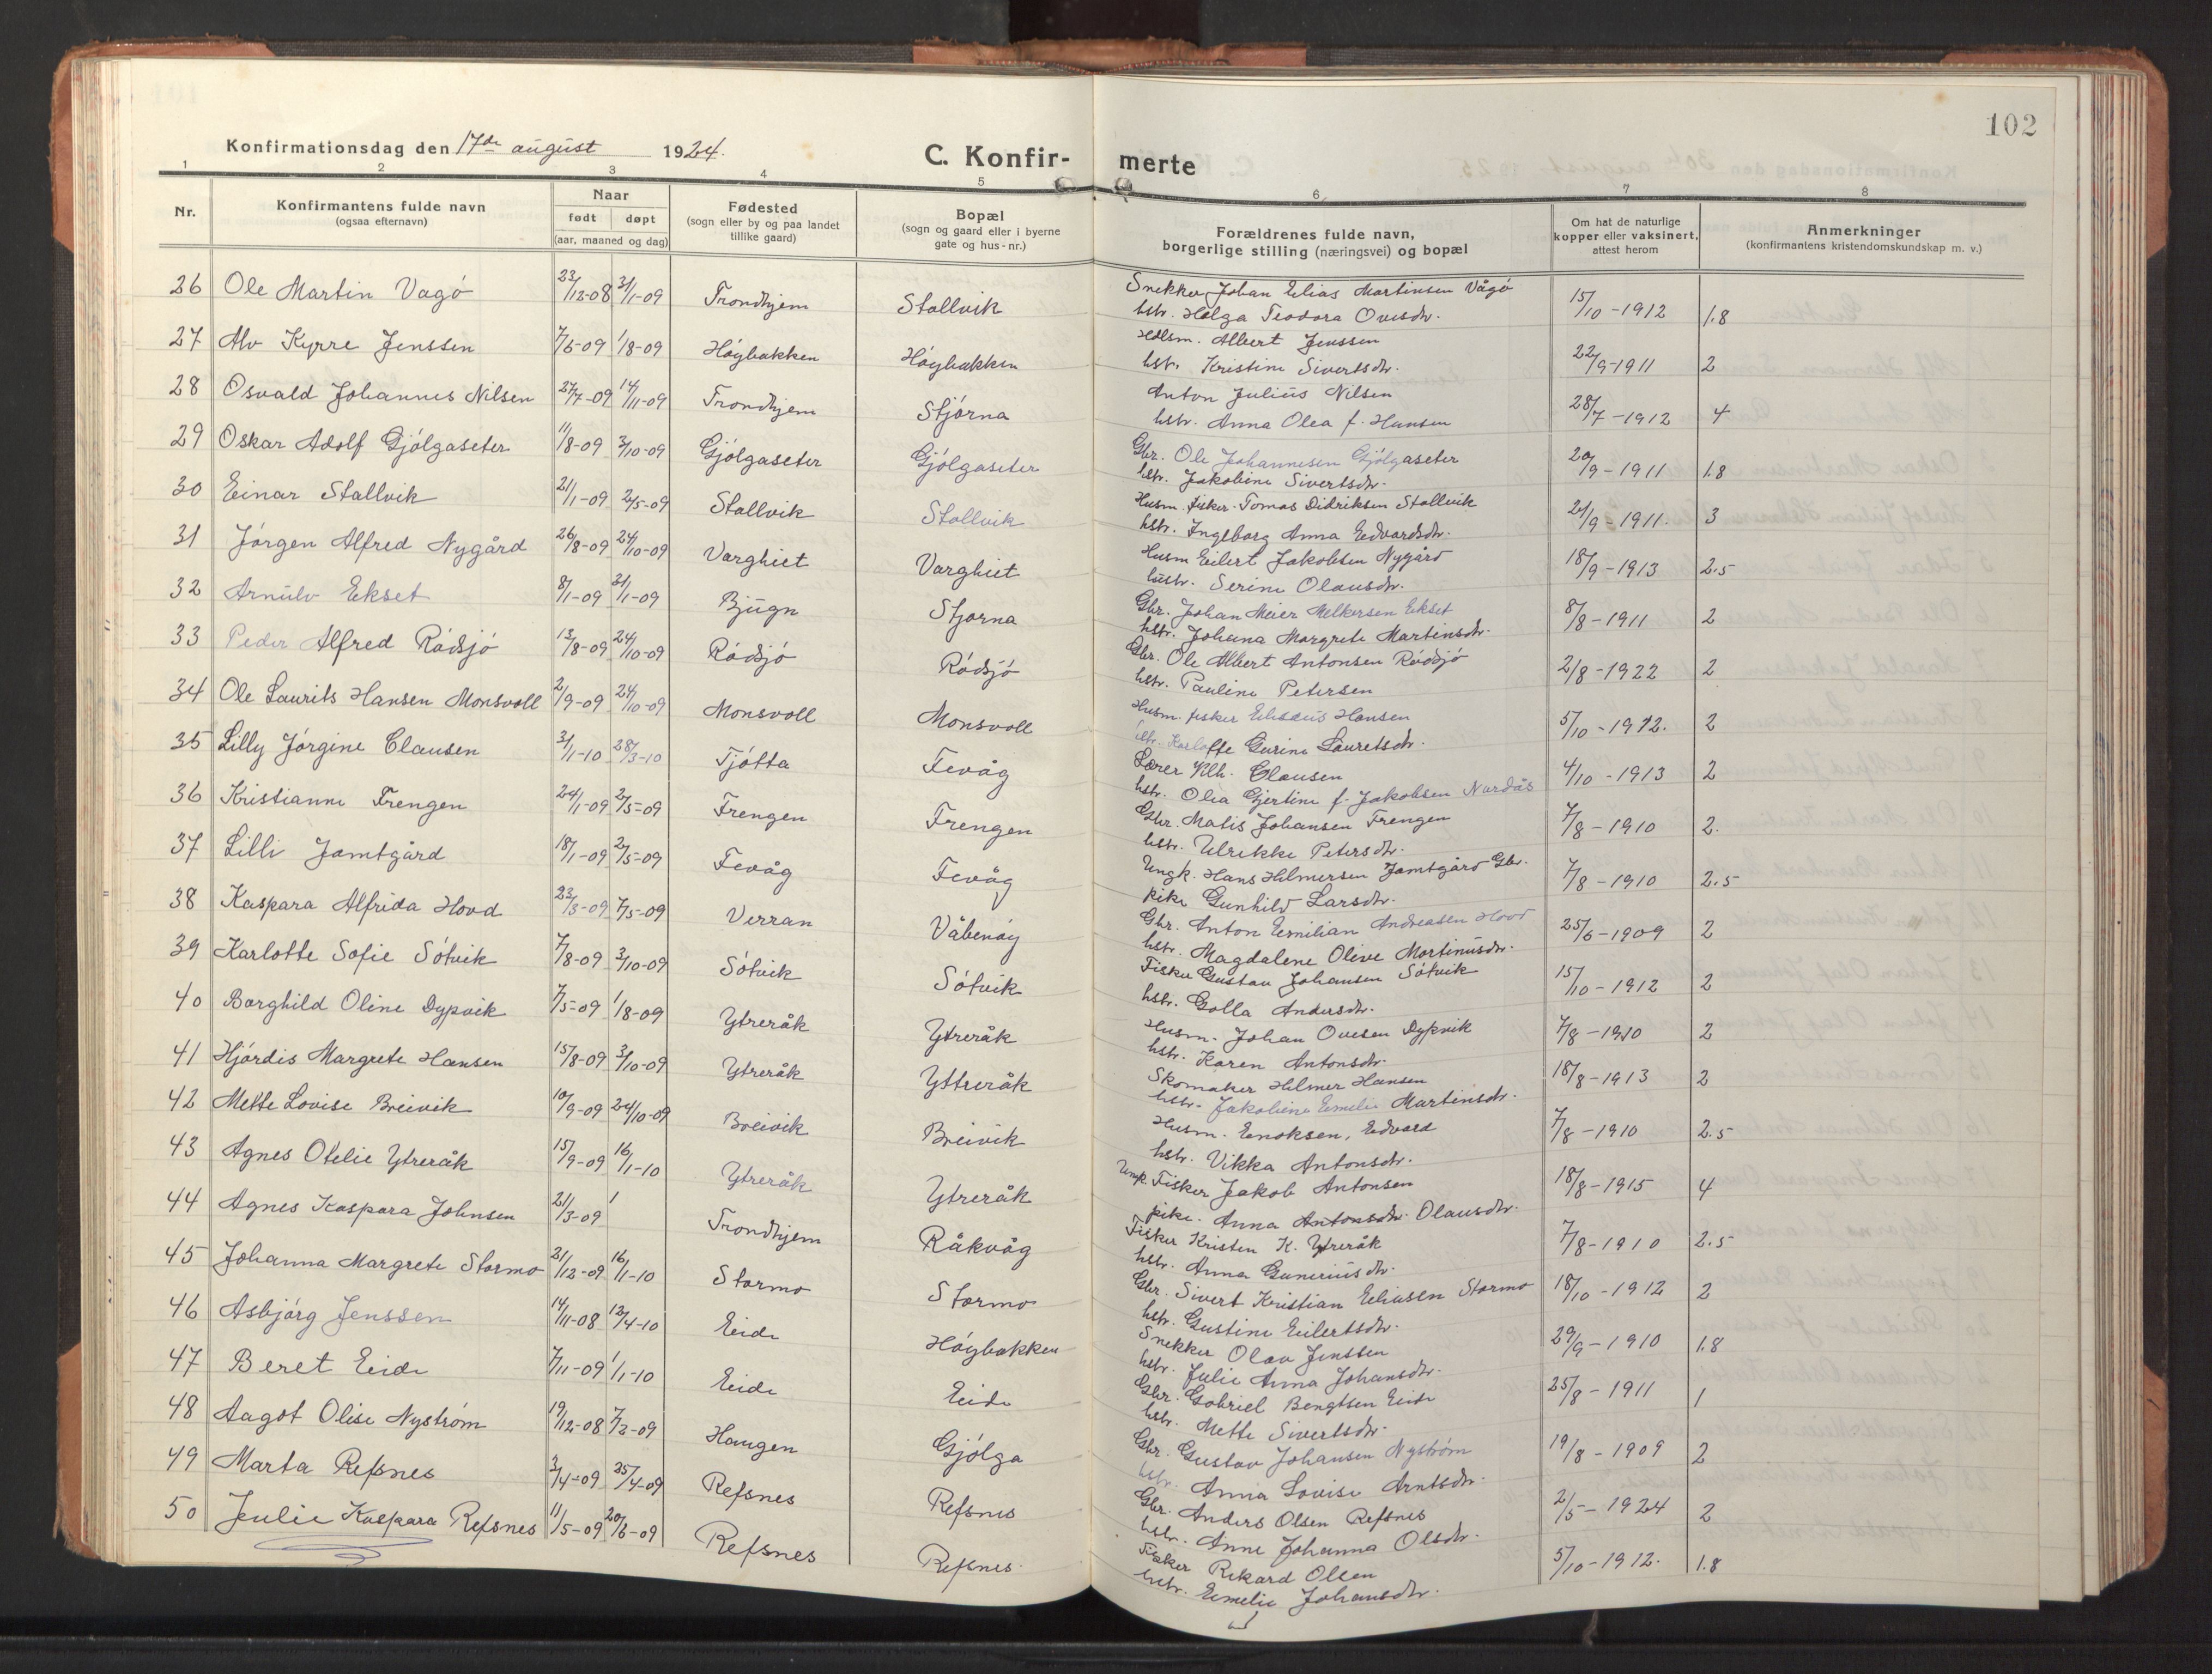 102
Konfirmationsdag den 17de august 1924.
C. Konfir- merte
1 2 3 4 5 6 7 8
Nr.
Konfirmantens fulde navn
(ogsaa efternavn)
Naar
født døpt
(aar, maaned og dag)
Fødested
(sogn eller by og paa landet
tillike gaard)
Bopæl
(sogn og gaard eller i byerne
gate og hus-nr.)
Forældrenes fulde navn,
borgerlige stilling (næringsvei) og bopæl
Om hat de naturlige
kopper eller vaksinert,
attest herom
Anmerkninger
(konfirmantens kristendomskundskap m. v.)
26 Ole Martin Vagö 23/12-08 31/1-09 Trondhjem Stallvik Snekker Johan Elias Martinsen Vågö 15/10-1912 1.8
hstr. Helga Teodora Ovesdtr.
27 Alv Kyrre Jenssen 7/6-09 1/8-09 Höybakken Höybakken Hdlsm. Albert Jenssen 22/9-1911 2
hstr. Kristine Sivertsdtr.
28 Osvald Johannes Nilsen 27/7-09 14/11-09 Trondhjem Stjörna Anton Julius Nilsen 28/7-1912 4
hstr. Anna Olea f. Hansen
29 Oskar Adolf Gjölgaseter 11/8-09 3/10-09 Gjölgaseter Gjölgaseter Gbr. Ole Johannesen Gjölgaseter 20/9-1911 1.8
hstr. Jakobine Sivertsdtr.
30 Einar Stallvik 21/1-09 2/5-09 Stallvik Stallvik Husm. fisker. Tomas Didriksen Stallvik 21/9-1911. 3
hstr. Ingeborg Anna Edvardsdtr.
31 Jörgen Alfred Nygård 26/8-09 24/10-09 Varghiet Varghiet Husm Eilert Jakobsen Nygård 18/9-1913 2.5
hustr. Serine Olausdtr.
32 Arnulv Ekset 8/1-09 31/1-09 Bjugn Stjorna Gbr. Johan Meier Melkersen Ekset 8/8-1911 2
hstr. Johana Margrete Martinsdtr.
33 Peder Alfred Rödsjö 13/8-09 24/10-09 Rödsjö Rödsjö Gbr. Ole Albert Antonsen Rödsjö 2/8-1922 2
hstr. Pauline Petersen
34 Ole Laurits Hansen Monsvoll 2/9-09 24/10-09 Monsvoll Monsvoll Husm. fisker Eliseus Hansen 5/10-1912. 2
hstr. Karlotte Gurine Lauretsdtr.
35 Lilly Jörgine Clausen 31/1-10 28/3-10 Tjötta Fevåg Lærer Klh. Clausen 4/10-1913 2
hstr. Olea Gjertine f. Jakobsen Nardås
36 Kristianne Frengen 24/1-09 2/5-09 Frengen Frengen Gbr. Matis Johansen Frengen 7/8-1910 2.
hstr. Ulrikke Petersdtr.
37 Lilli Jamtgård 18/1-09 2/5-09 Fevåg Fevåg Ungk. Hans Hilmersen Jamtgård Gbr. 7/8-1910 2.5
pike Gunhild Larsdtr.
38 Kaspara Alfrida Hovd 23/3-09 7/5-09 Verran Våbenöy Gbr. Anton Emilian Andreasen Hovd 25/6-1909 2
hstr. Magdalene Olive Martinusdtr.
39 Karlotte Sofie Sötvik 7/8-09 3/10-09 Sötvik Sötvik Fisker Gustav Johansen Sötvik 15/10-1912 2
hstr. Golla Andersdtr.
40 Borghild Oline Dypvik 7/5-09 1/8-09 Ytreråk Ytreråk Husm. Johan Ovesen Dypvik 7/8-1910 2
hstr. Karen Antonsdtr.
41 Hjördis Margrete Hansen 15/8-09 3/10-09 Ytreråk Yttreråk Skomaker Hilmer Hansen 18/8-1913 2
hstr. Jakobine Emelie Martinsdtr.
42 Mette Lovise Breivik 10/9-09 24/10-09 Breivik Breivik Husm. Enoksen, Edvard 7/8-1910 2.5
hstr. Vikka Antonsdtr.
43 Agnes Otelie Ytreråk 15/9-09 16/1-10 Ytreråk Ytreråk Ungk. Fisker Jakob Antonsen 18/8-1915 4
pike. Anna Antonsdtr. Olausdtr.
44 Agnes Kaspara Johnsen 21/3-09 / Trondhjem Råkvåg Fisker Kristen K. Ytreråk 7/8-1910 2.5
hstr. Anna Guneriusdtr.
45 Johanna Margrete Stormo 21/12-09 16/1-10 Stormo Stormo Gbr. Sivert Kristian Eliasen Stormo 18/10-1912 2
hstr. Gustine Eilertsdtr.
46 Asbjörg Jenssen 14/11-08 12/4-10 Eide Höybakken Snekker Olav Jenssen 29/9-1910 1.8
hstr. Julie Anna Johansdtr.
47 Beret Eide 7/11-09 1/1-10 Eide Eide Gbr. Gabriel Bengtsen Eide 25/8-1911 1
hstr. Mette Sivertsdtr.
48 Aagot Olise Nyström 19/12-08 7/2-09 Haugen Gjölga Gbr. Gustav Johansen Nyström 19/8-1909 2
hstr. Anna Lovise Arntsdtr.
49 Marta Refsnes 3/4-09 25/4-09 Refsnes Refsnes Gbr. Anders Olsen Refsnes 2/5-1924 2
hstr. Anne Johanna Olsdtr.
50 Julie Kaspara Refsnes 11/5-09 20/6-09 Refsnes Refsnes. Fisker Rikard Olsen 5/10-1912. 1.8
hstr. Emelie Johansdtr.